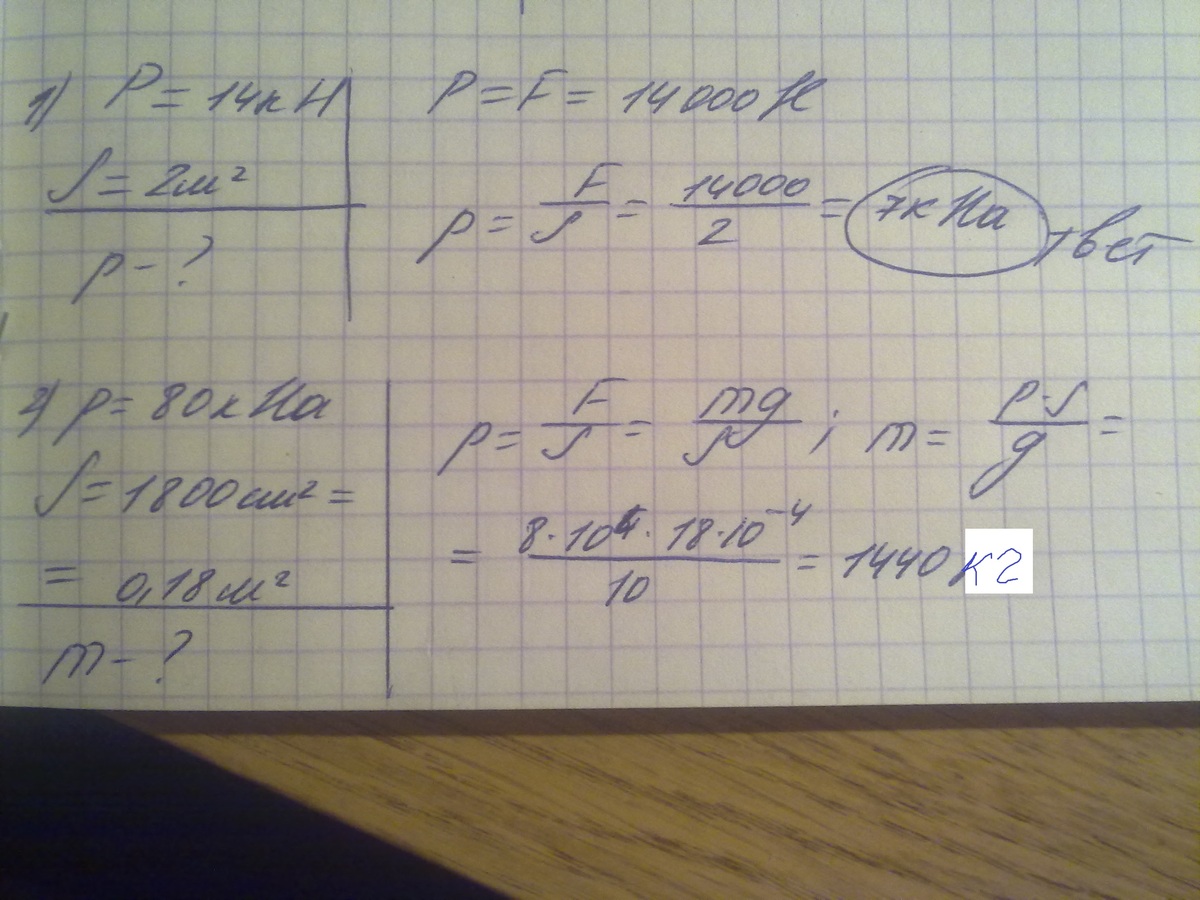 1) P = 14кН
S = 2м²
p - ?
P = F = 14000 Н
p = F/S = 14000/2 = 7кПа ответ
2) p = 80кПа
S = 1800см² =
= 0,18м²
m - ?
p = F/S = mg/S ; m = p·S/g =
= 8·10⁴·18·10⁻⁴/10 = 1440 кг